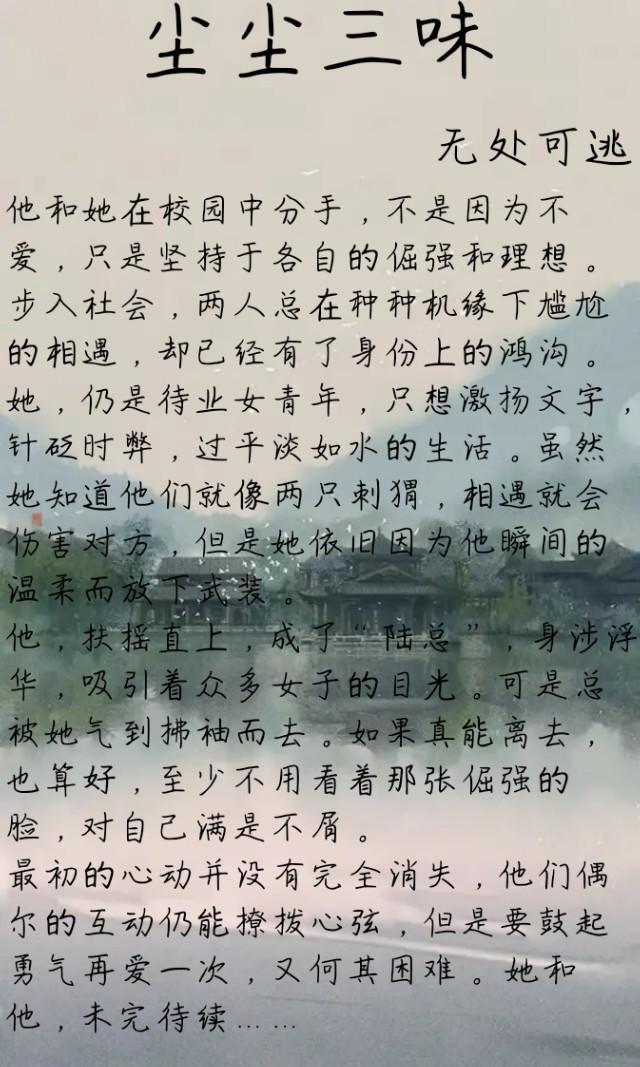 尘尘三味
无处可逃
他和她在校园中分手，不是因为不
爱，只是坚持于各自的倔强和理想。
步入社会，两人总在种种机缘下尴尬
的相遇，却已经有了身份上的鸿沟。
她，仍是待业女青年，只想激扬文字，
针砭时弊，过平淡如水的生活。虽然
她知道他们就像两只刺猬，相遇就会
伤害对方，但是她依旧因为他瞬间的
温柔而放下武装。
他，扶摇直上，成了“陆总”，身涉浮
华，吸引着众多女子的目光。可是总
被她气到拂袖而去。如果真能离去，
也算好，至少不用看着那张倔强的
脸，对自己满是不屑。
最初的心动并没有完全消失，他们偶
尔的互动仍能撩拨心弦，但是要鼓起
勇气再爱一次，又何其困难。她和
他，未完待续……